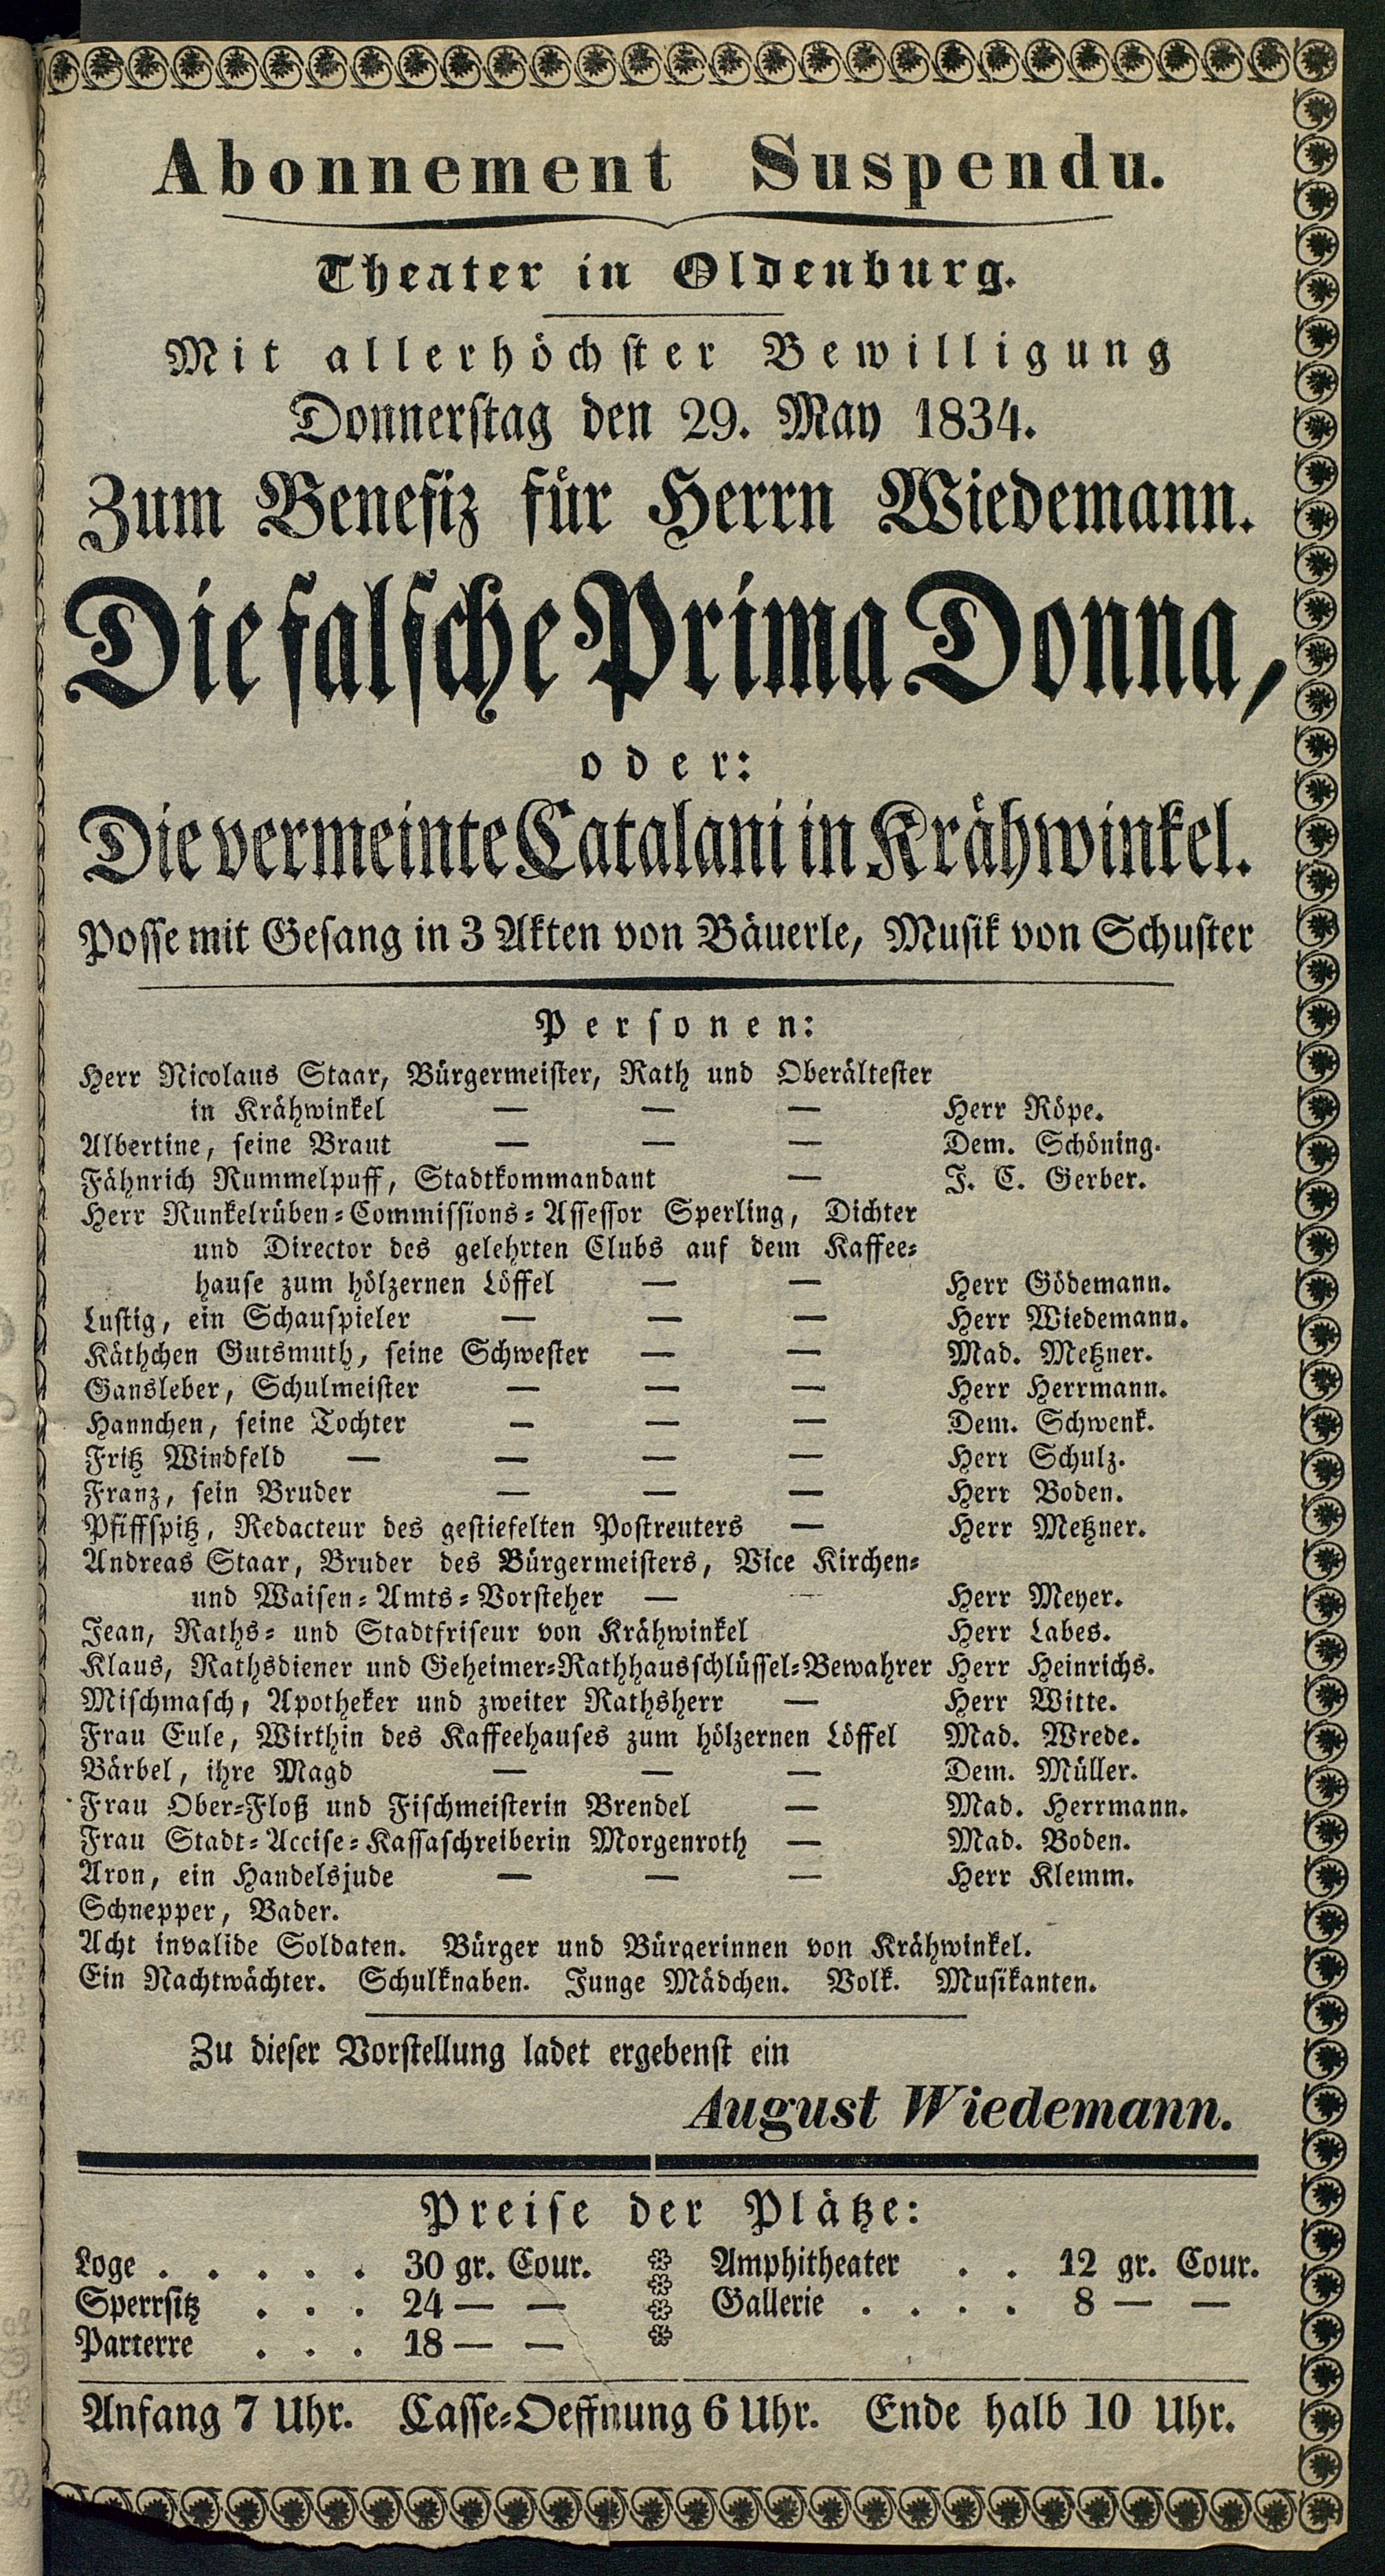 Abonnement Suspendu.
Theater in Oldenburg.
Mit allerhöchster Bewilligung
Donnerstag den 29. May 1834.
Zum Benefiz für Herrn Wiedemann.
Die falsche Prima Donna,
oder:
Die vermeinte Catalani in Krähwinkel.
Posse mit Gesang in 3 Akten von Bäuerle, Musik von Schuster
Personen:
Herr Nicolaus Staar, Bürgermeister, Rath und Oberältester
in Krähwinkel — — — Herr Röpe.
Albertine, seine Braut — — — Dem. Schöning.
Fähnrich Rummelpuff, Stadtkommandant — J. C. Gerber.
Herr Runkelrüben-Commissions-Assessor Sperling, Dichter
und Director des gelehrten Clubs auf dem Kaffee-
hause zum hölzernen Löffel — — Herr Gödemann.
Lustig, ein Schauspieler — — — Herr Wiedemann.
Käthchen Gutsmuth, seine Schwester — — Mad. Metzner.
Gansleber, Schulmeister — — — Herr Herrmann.
Hannchen, seine Tochter — — — Dem. Schwenk.
Fritz Windfeld — — — — Herr Schulz.
Franz, sein Bruder — — — Herr Boden.
Pfiffspitz, Redacteur des gestiefelten Postreuters — Herr Metzner.
Andreas Staar, Bruder des Bürgermeisters, Vice Kirchen-
und Waisen-Amts-Vorsteher — — Herr Meyer.
Jean, Raths- und Stadtfriseur von Krähwinkel Herr Labes.
Klaus, Rathsdiener und Geheimer-Rathhausschlüssel-Bewahrer Herr Heinrichs.
Mischmasch, Apotheker und zweiter Rathsherr — Herr Witte.
Frau Eule, Wirthin des Kaffeehauses zum hölzernen Löffel Mad. Wrede.
Bärbel, ihre Magd — — — Dem. Müller.
Frau Ober-Floß und Fischmeisterin Brendel — Mad. Herrmann.
Frau Stadt-Accise-Kassaschreiberin Morgenroth — Mad. Boden.
Aron, ein Handelsjude — — — Herr Klemm.
Schnepper, Bader.
Acht invalide Soldaten. Bürger und Bürgerinnen von Krähwinkel.
Ein Nachtwächter. Schulknaben. Junge Mädchen. Volk. Musikanten.
Zu dieser Vorstellung ladet ergebenst ein
August Wiedemann.
Preise der Plätze:
Loge . . . . . 30 gr. Cour. Amphitheater . . 12 gr. Cour.
Sperrsitz . . . 24 — — Gallerie . . . . 8 — —
Parterre . . . 18 — —
Anfang 7 Uhr. Casse-Oeffnung 6 Uhr. Ende halb 10 Uhr.